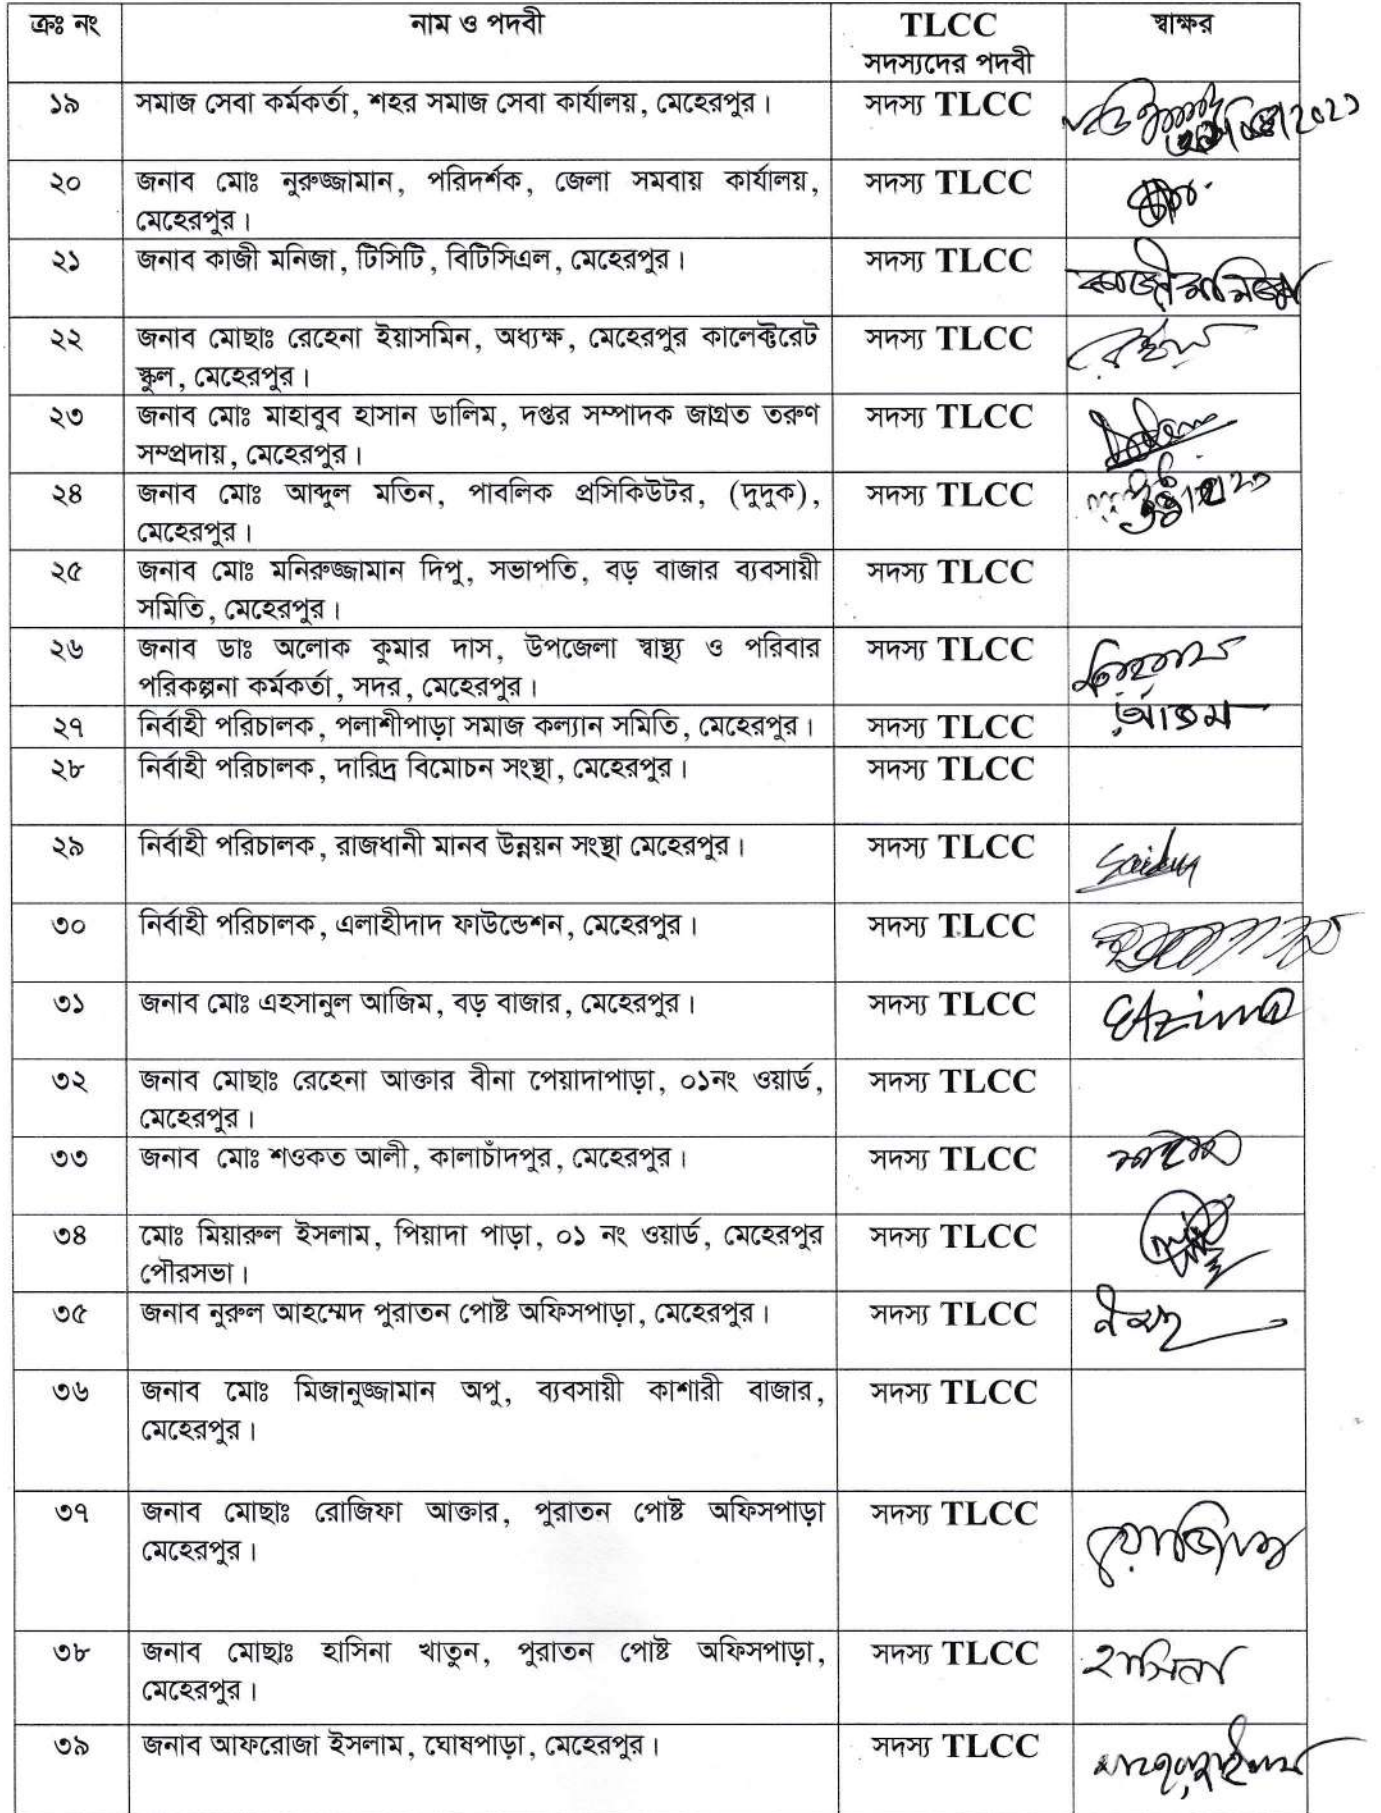 ক্রঃ নং নাম ও পদবী TLCC স্বাক্ষর
সদস্যদের পদবী
১৯ সমাজ সেবা কর্মকর্তা, শহর সমাজ সেবা কার্যালয়, মেহেরপুর। সদস্য TLCC
২০ জনাব মোঃ নুরুজ্জামান, পরিদর্শক, জেলা সমবায় কার্যালয়, সদস্য TLCC
মেহেরপুর।
২১ জনাব কাজী মনিজা, টিসিটি, বিটিসিএল, মেহেরপুর। সদস্য TLCC কাজী মনিজা
২২ জনাব মোছাঃ রেহেনা ইয়াসমিন, অধ্যক্ষ, মেহেরপুর কালেক্টরেট সদস্য TLCC
স্কুল, মেহেরপুর।
২৩ জনাব মোঃ মাহাবুব হাসান ডালিম, দপ্তর সম্পাদক জাগ্রত তরুণ সদস্য TLCC
সম্প্রদায়, মেহেরপুর।
২৪ জনাব মোঃ আব্দুল মতিন, পাবলিক প্রসিকিউটর, (দুদুক), সদস্য TLCC
মেহেরপুর।
২৫ জনাব মোঃ মনিরুজ্জামান দিপু, সভাপতি, বড় বাজার ব্যবসায়ী সদস্য TLCC
সমিতি, মেহেরপুর।
২৬ জনাব ডাঃ অলোক কুমার দাস, উপজেলা স্বাস্থ্য ও পরিবার সদস্য TLCC
পরিকল্পনা কর্মকর্তা, সদর, মেহেরপুর।
২৭ নির্বাহী পরিচালক, পলাশীপাড়া সমাজ কল্যান সমিতি, মেহেরপুর। সদস্য TLCC
২৮ নির্বাহী পরিচালক, দারিদ্র বিমোচন সংস্থা, মেহেরপুর। সদস্য TLCC
২৯ নির্বাহী পরিচালক, রাজধানী মানব উন্নয়ন সংস্থা মেহেরপুর। সদস্য TLCC
৩০ নির্বাহী পরিচালক, এলাহীদাদ ফাউন্ডেশন, মেহেরপুর। সদস্য TLCC
৩১ জনাব মোঃ এহসানুল আজিম, বড় বাজার, মেহেরপুর। সদস্য TLCC EAzim
৩২ জনাব মোছাঃ রেহেনা আক্তার বীনা পেয়াদাপাড়া, ০১নং ওয়ার্ড, সদস্য TLCC
মেহেরপুর।
৩৩ জনাব মোঃ শওকত আলী, কালাচাঁদপুর, মেহেরপুর। সদস্য TLCC
৩৪ মোঃ মিয়ারুল ইসলাম, পিয়াদা পাড়া, ০১ নং ওয়ার্ড, মেহেরপুর সদস্য TLCC
পৌরসভা।
৩৫ জনাব নুরুল আহম্মেদ পুরাতন পোষ্ট অফিসপাড়া, মেহেরপুর। সদস্য TLCC
৩৬ জনাব মোঃ মিজানুজ্জামান অপু, ব্যবসায়ী কাশারী বাজার, সদস্য TLCC
মেহেরপুর।
৩৭ জনাব মোছাঃ রোজিফা আক্তার, পুরাতন পোষ্ট অফিসপাড়া সদস্য TLCC
মেহেরপুর। রোজিফা
৩৮ জনাব মোছাঃ হাসিনা খাতুন, পুরাতন পোষ্ট অফিসপাড়া, সদস্য TLCC হাসিনা
মেহেরপুর।
৩৯ জনাব আফরোজা ইসলাম, ঘোষপাড়া, মেহেরপুর। সদস্য TLCC